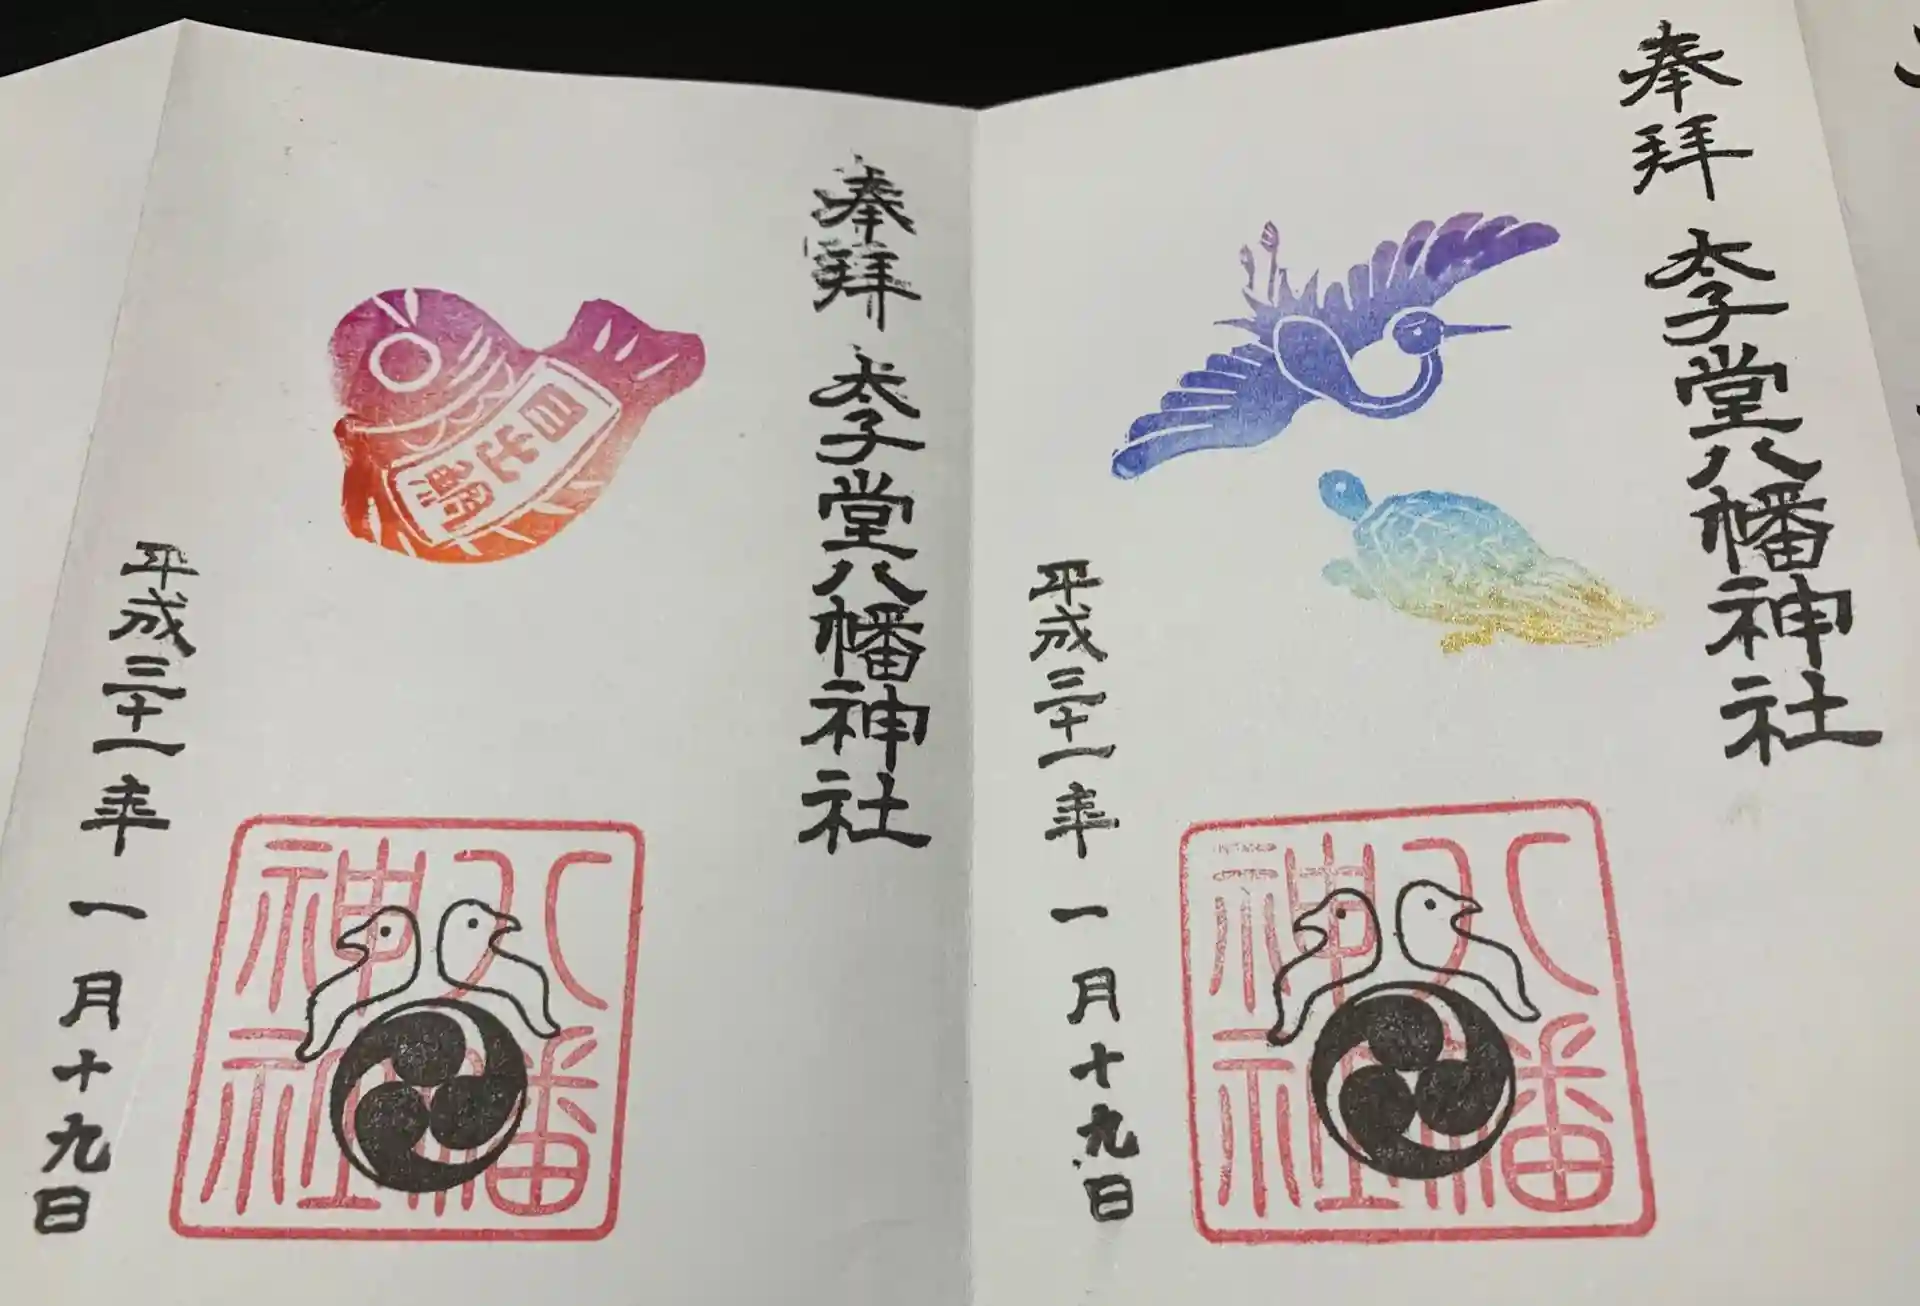 奉拝 太子堂八幡神社
平成三十一年一月十九日
八幡
神社
奉拝 太子堂八幡神社
目出鯛
平成三十一年一月十九日
八幡
神社